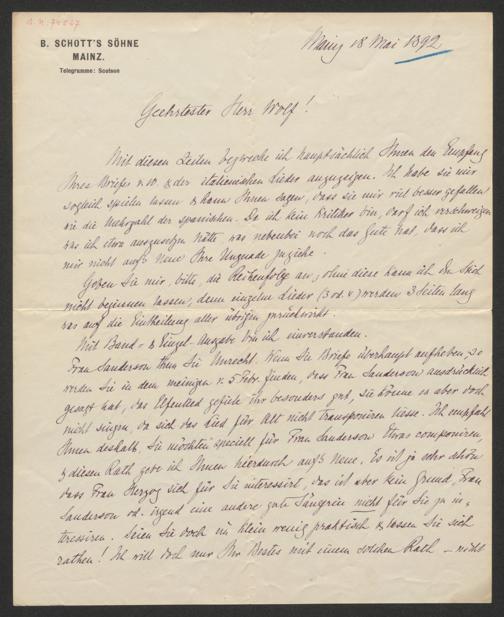 B. SCHOTT'S SÖHNE
MAINZ.
Telegramme: Scotson
Mainz 18 Mai 1892
Geehrtester Herr Wolf!
Mit diesen Zeilen bezwecke ich hauptsächlich Ihnen den Empfang
Ihres Briefes & der italienischen Lieder anzuzeigen. Ich habe sie mir
sogleich spielen lassen & kann Ihnen sagen, dass sie mir viel besser gefallen
wie die Mehrzahl der spanischen. Da ich kein Kritiker bin, darf ich verschweigen
was ich etwa auszusetzen hätte, was nebenbei noch das Gute hat, dass ich
mir nicht aufs Neue Ihre Ungnade zuziehe.
Geben Sie mir, bitte, die Reihenfolge an; ohne diese kann ich den Stich
nicht beginnen lassen, denn einzelne Lieder (3 od. 4) werden 3 Seiten lang
was auf die Eintheilung aller übrigen zurückwirkt.
Mit Band- & Einzel-Ausgabe bin ich einverstanden.
Frau Sanderson thun Sie Unrecht. Wenn Sie Briefe überhaupt aufheben, so
werden Sie in dem meinigen v. 5 Febr. finden, dass Frau Sanderson ausdrücklich
gesagt hat, das Elfenlied gefiele ihr besonders gut, sie könne es aber doch
nicht singen, da sich das Lied für Alt nicht transponiren liesse. Ich empfahl
Ihnen deshalb, Sie möchten speciell für Frau Sanderson Etwas componiren,
& diesen Rath gebe ich Ihnen hierdurch aufs Neue. Es ist ja sehr schön
dass Frau Herzog sich für Sie interessirt, das ist aber kein Grund, Frau
Sanderson od. irgend eine andere gute Sängerin nicht für Sie zu in-
teressiren. Seien Sie doch ein klein wenig praktisch & lassen Sie sich
rathen! Ich will doch nur Ihr Bestes mit einem solchen Rath – nicht